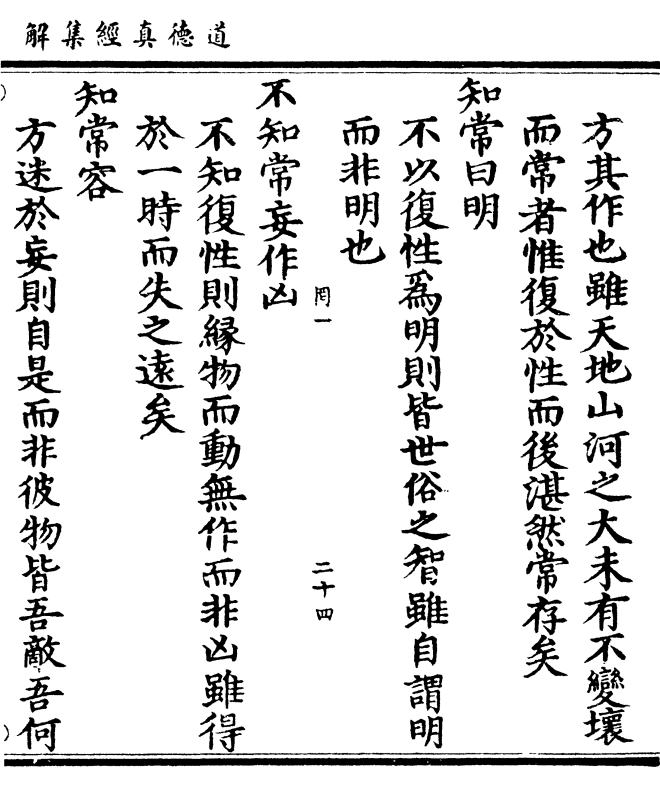 道德真經集解
方其作也雖天地山河之大未有不變壞
而常者惟復於性而後湛然常存矣
知常曰明
不以復性爲明則皆世俗之智雖自謂明
而非明也
罔一
二十四
不知常妄作凶
不知復性則縁物而動無作而非凶雖得
於一時而失之遠矣
知常容
方迷於妄則自是而非彼物皆吾敵吾何